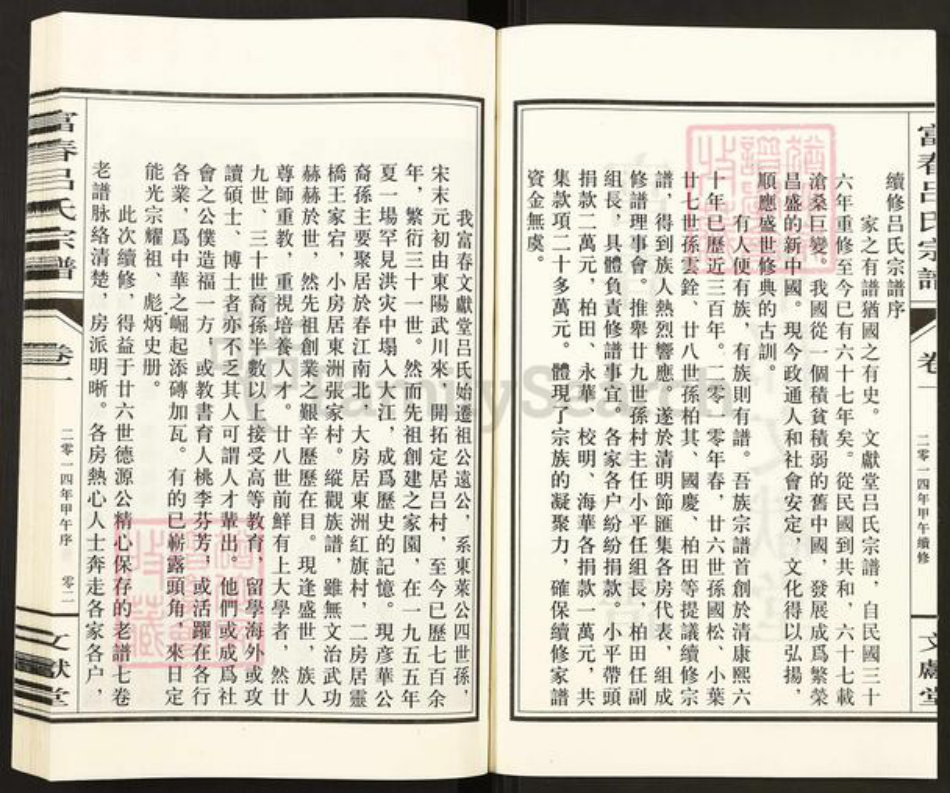 富春呂氏宗譜
卷一
二零一四年甲午續修
文獻堂
續修呂氏宗譜序
家之有譜猶國之有史。文獻堂呂氏宗譜，自民國三十
六年重修至今已有六十七年矣。從民國到共和，六十七載
滄桑巨變。我國從一個積貧積弱的舊中國，發展成爲繁榮
昌盛的新中國。現今政通人和社會安定，文化得以弘揚，
順應盛世修典的古訓。
有人便有族，有族則有譜。吾族宗譜首創於清康熙六
十年已歷近三百年。二零一零年春，廿六世孫國松、小葉
廿七世孫雲銓、廿八世孫柏其、國慶、柏田等提議續修宗
譜，得到族人熱烈響應，遂於清明節匯集各房代表，組成
修譜理事會。推舉廿九世孫村主任小平任組長，柏田任副
組長，具體負責修譜事宜。各家各户紛紛捐款。小平帶頭
捐款二萬元，柏田、永華、校明、海華各捐款一萬元，共
集款項二十多萬元。體現了宗族的凝聚力，確保續修家譜
資金無虞。
我富春文獻堂呂氏始遷祖公遠公，系東萊公四世孫，
宋末元初由東陽武川來，開拓定居呂村，至今已歷七百余
年，繁衍三十一世。然而先祖創建之家園，在一九五五年
夏一場罕見洪灾中塌入大江，成爲歷史的記憶。現彦華公
裔孫主要聚居於春江南北，大房居東洲紅旗村，二房居靈
橋王家宕，小房居東洲張家村。縱觀族譜，雖無文治武功
赫赫於世，然先祖創業之艱辛歷歷在目。現逢盛世，族人
尊師重教，重視培養人才。廿八世前鮮有上大學者，然廿
九世、三十世裔孫半數以上接受高等教育，留學海外或攻
讀碩士、博士者亦不乏其人可謂人才輩出。他們或成爲社
會之公僕造福一方，或教書育人桃李芬芳，或活躍在各行
各業，爲中華之崛起添磚加瓦。有的已嶄露頭角，來日定
能光宗耀祖、彪炳史册。
此次續修，得益于廿六世德源公精心保存的老譜七卷
老譜脉絡清楚，房派明晰。各房熱心人士奔走各家各户，
富春呂氏宗譜
卷一
二零一四年甲午序
零二
文獻堂
FamilySearch